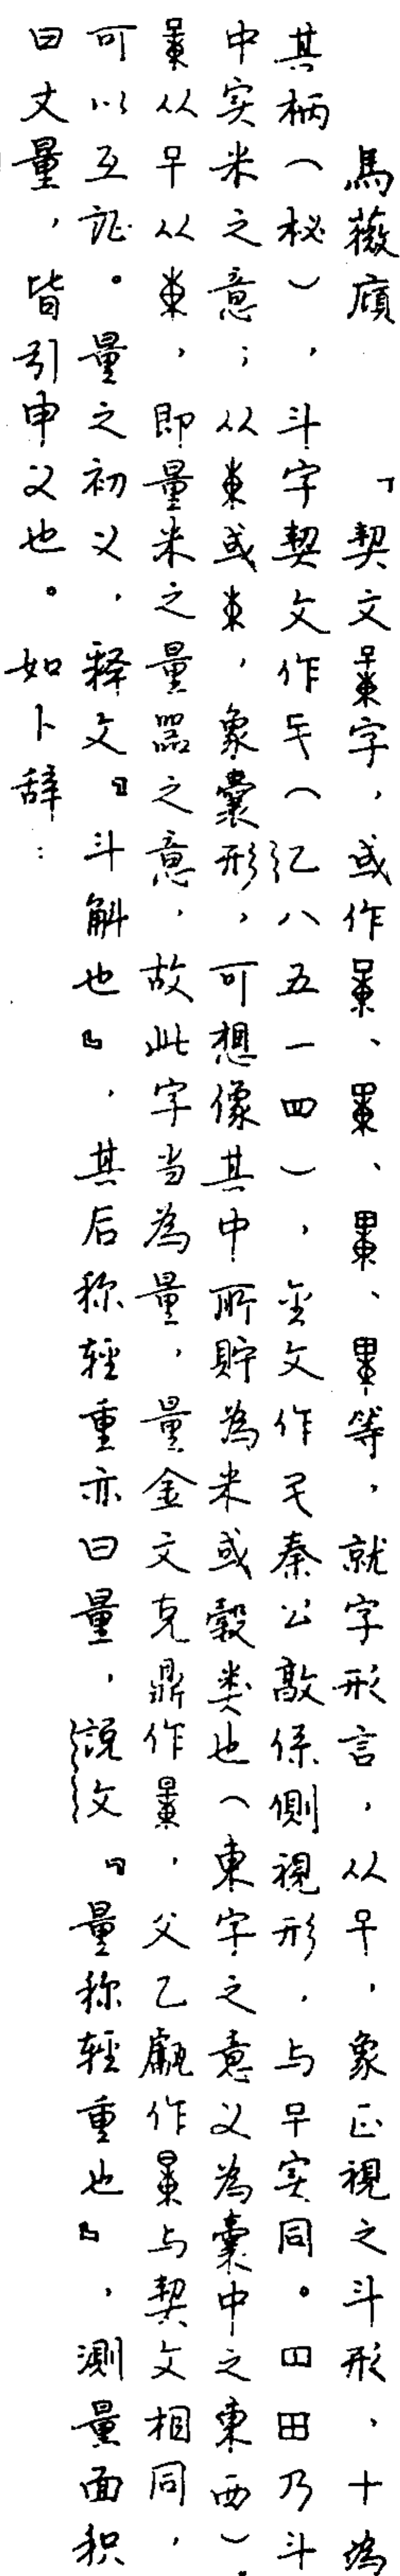 馬薇廎 「契文字，或作、、、等，就字形言，从，象正視之斗形，十為
其柄（柲），斗字契文作（記八五一四），金文作秦公𣪘係側視形，与实同。田乃斗
中实米之意；从東或，象囊形，可想像其中所貯為米或穀类也（東字之意义為囊中之東西）。
从从東，即量米之量器之意，故此字当為量，量金文克鼎作，父乙甗作与契文相同，
可以互証。量之初义，释文『斗斛也』，其后称輕重亦曰量，說文『量称輕重也』，測量面积
曰丈量，皆引申义也。如卜辞：